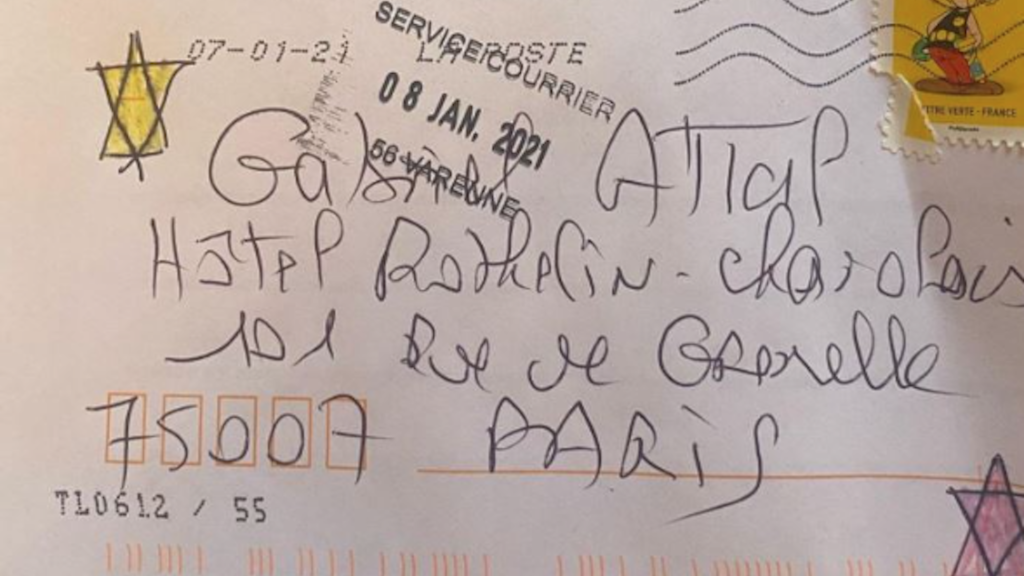 07-01-21 LA POSTE
SERVICE COURRIER
08 JAN. 2021
56 VARENNE
TTRE VERTE - FRANCE
Gabriel ATTal
Hôtel Rothelin - Charolais
101 Rue de Grenelle
75007 PARis
TL0612 / 55